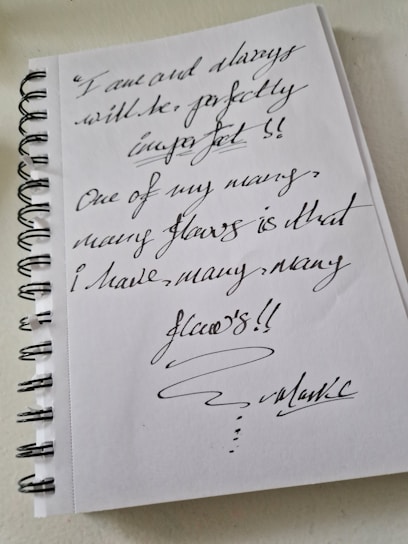 "I am and always
will be, perfectly
imperfect !!
One of my many,
many flaws is that
i have, many, many
flaw's!!